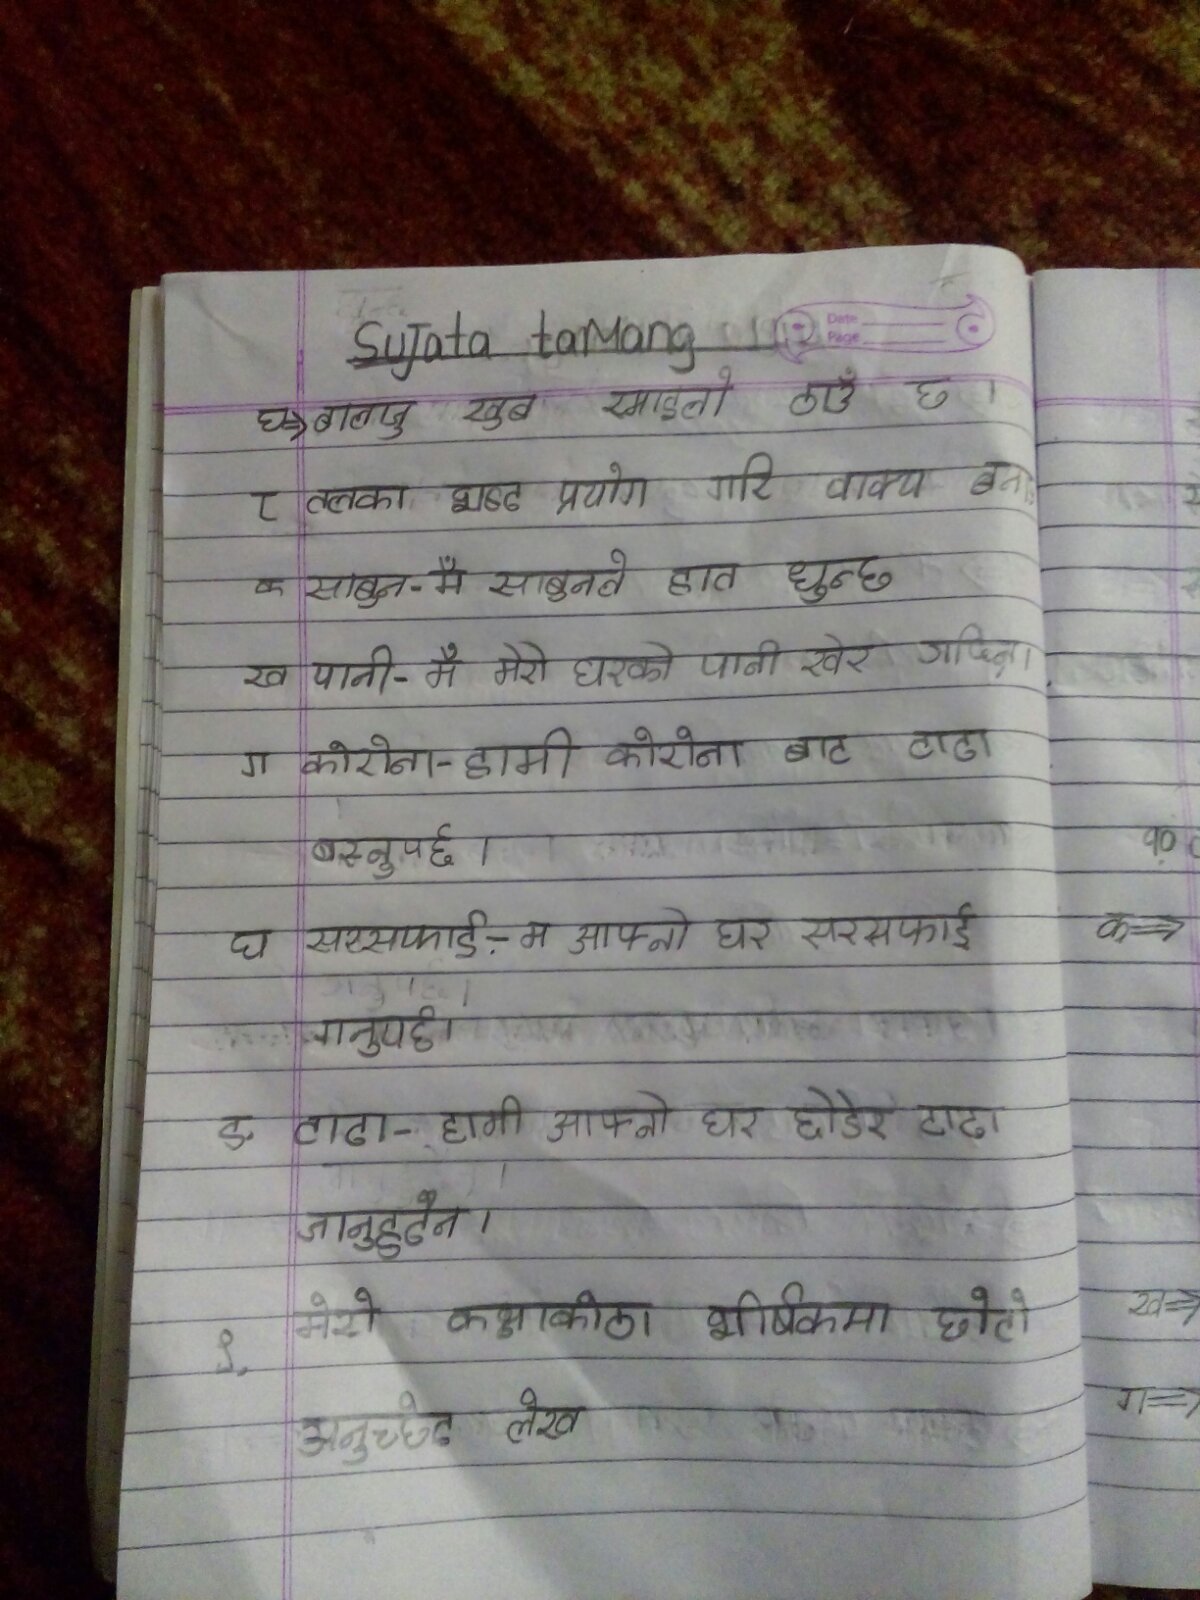 Sujata tamang
Date
Page
घ⇒बालाजु खुब रमाइलो ठाउँ छ ।
८ तलका शब्द प्रयोग गरि वाक्य बना
क साबुन-मैँ साबुनले हात धुन्छ
ख पानी-मैँ मेरो घरको पानी खेर
ग कोरोना-हामी कोरोना बाट टाढा
बस्नुपर्छ ।
१०
घ सरसफाई-म आफ्नो घर सरसफाई
क⇒
गनुपर्छ।
ङ टाढा-हामी आफ्नो घर छोडेर टाढा
जानुहुदैन ।
९. मेरो कक्षाकोठा शीर्षकमा छोटो
ख⇒
अनुच्छेद लेख
ग⇒